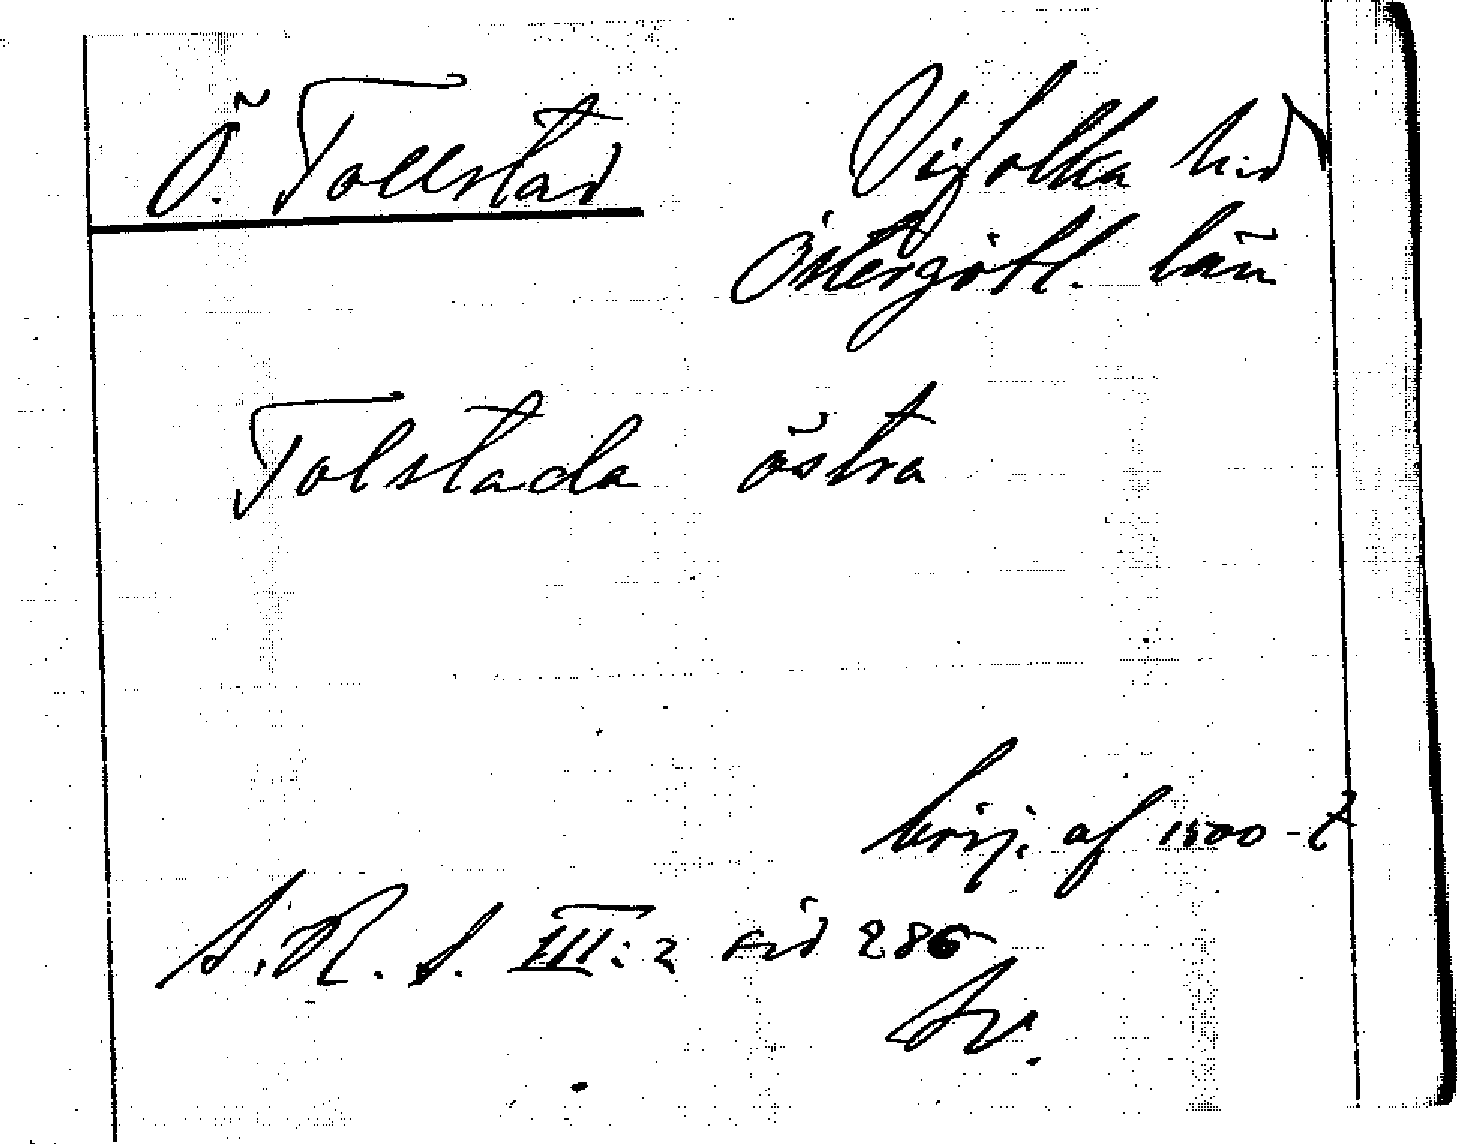 Ö. Tollstad
Vifolka hd
Östergötl. län
Tolstada östra
börj. af 1500-t
S.R.S. III:2 sid 286
Sv.